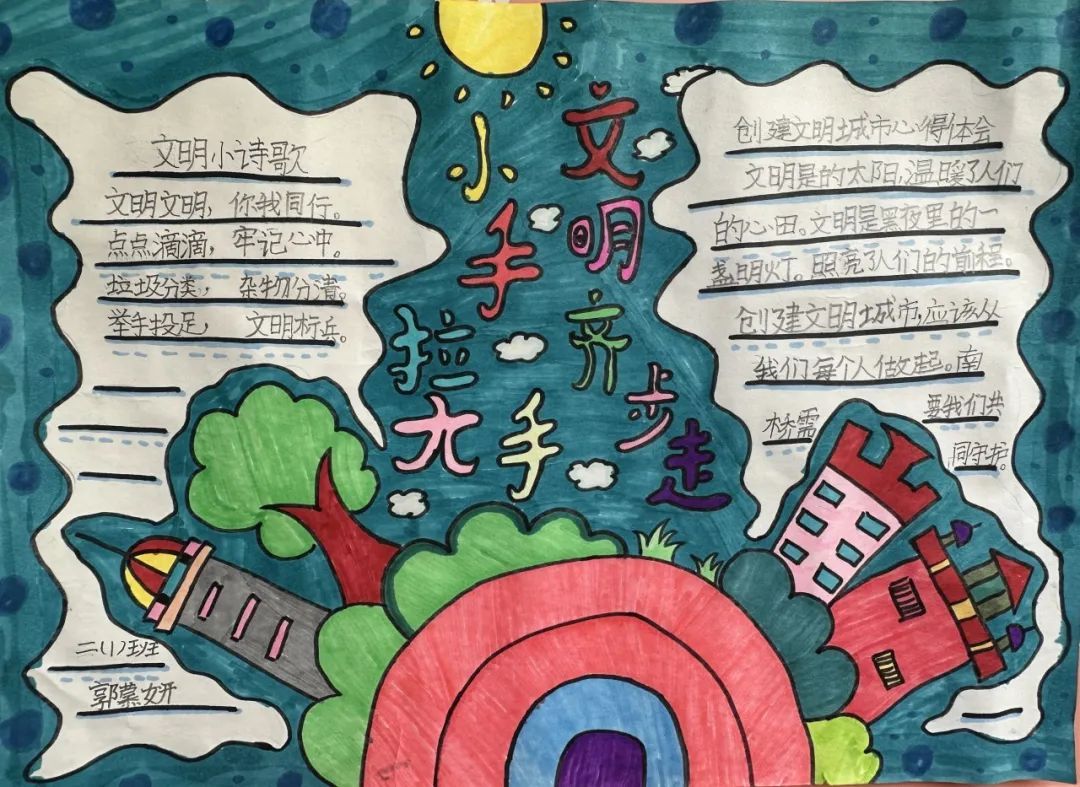 小手拉大手
文明齐步走
文明小诗歌
文明文明，你我同行。
点点滴滴，牢记心中。
垃圾分类，杂物分清。
举手投足，文明标兵。
二(1)班
郭慕妍
创建文明城市心得体会
文明是的太阳，温暖了人们
的心田。文明是黑夜里的一
盏明灯。照亮了人们的前程。
创建文明城市，应该从
我们每个人做起。南
桥需
要我们共
同守护。